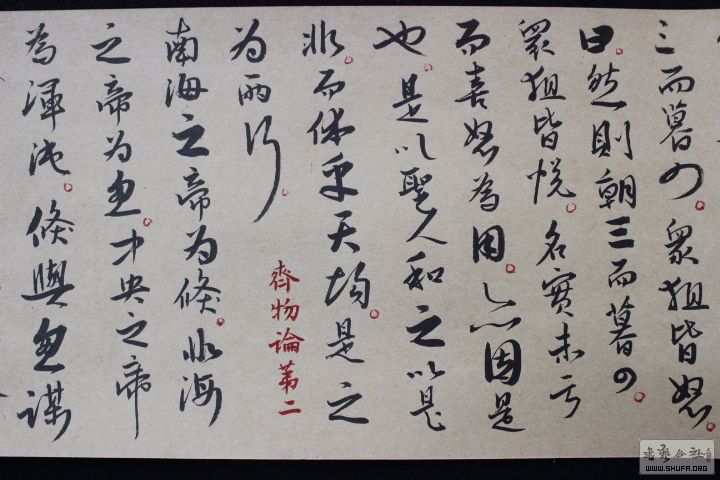 三而暮四。眾狙皆怒。
曰。然則朝三而暮四。
眾狙皆悅。名實未亏
而喜怒為用。亦因是
也。是以聖人和之以是
非。而休乎天均。是之
为兩行。
齊物論第二
南海之帝为倏。北海
之帝为忽。中央之帝
為渾沌。倏與忽謀
书艺公社
WWW.SHUFA.ORG